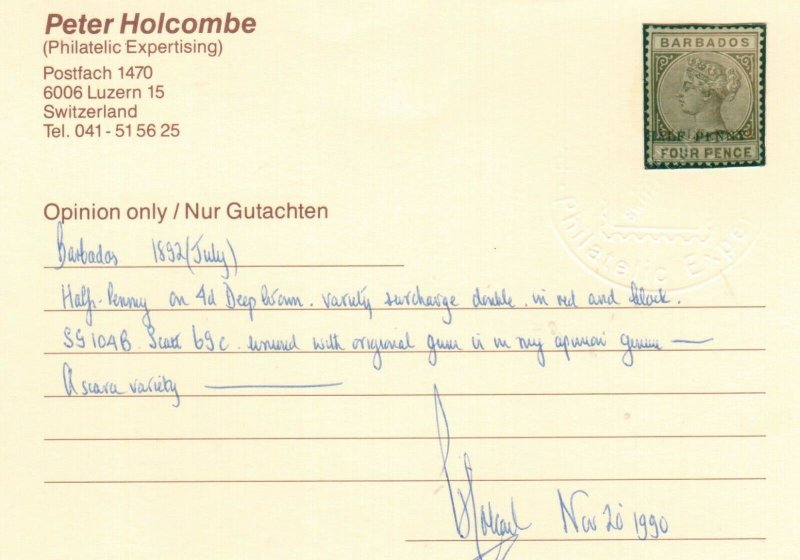 Peter Holcombe
(Philatelic Expertising)
Postfach 1470
6006 Luzern 15
Switzerland
Tel. 041 - 51 56 25
BARBADOS
HALF-PENNY
FOUR PENCE
Philatelic Expe
Opinion only / Nur Gutachten
Barbados 1892 (July)
Half-Penny on 4d Deep brown. variety surcharge double. in red and black.
SG104B. Scott 69c. unused with original gum is in my opinion genuine —
A scarce variety —
Nov 20 1990